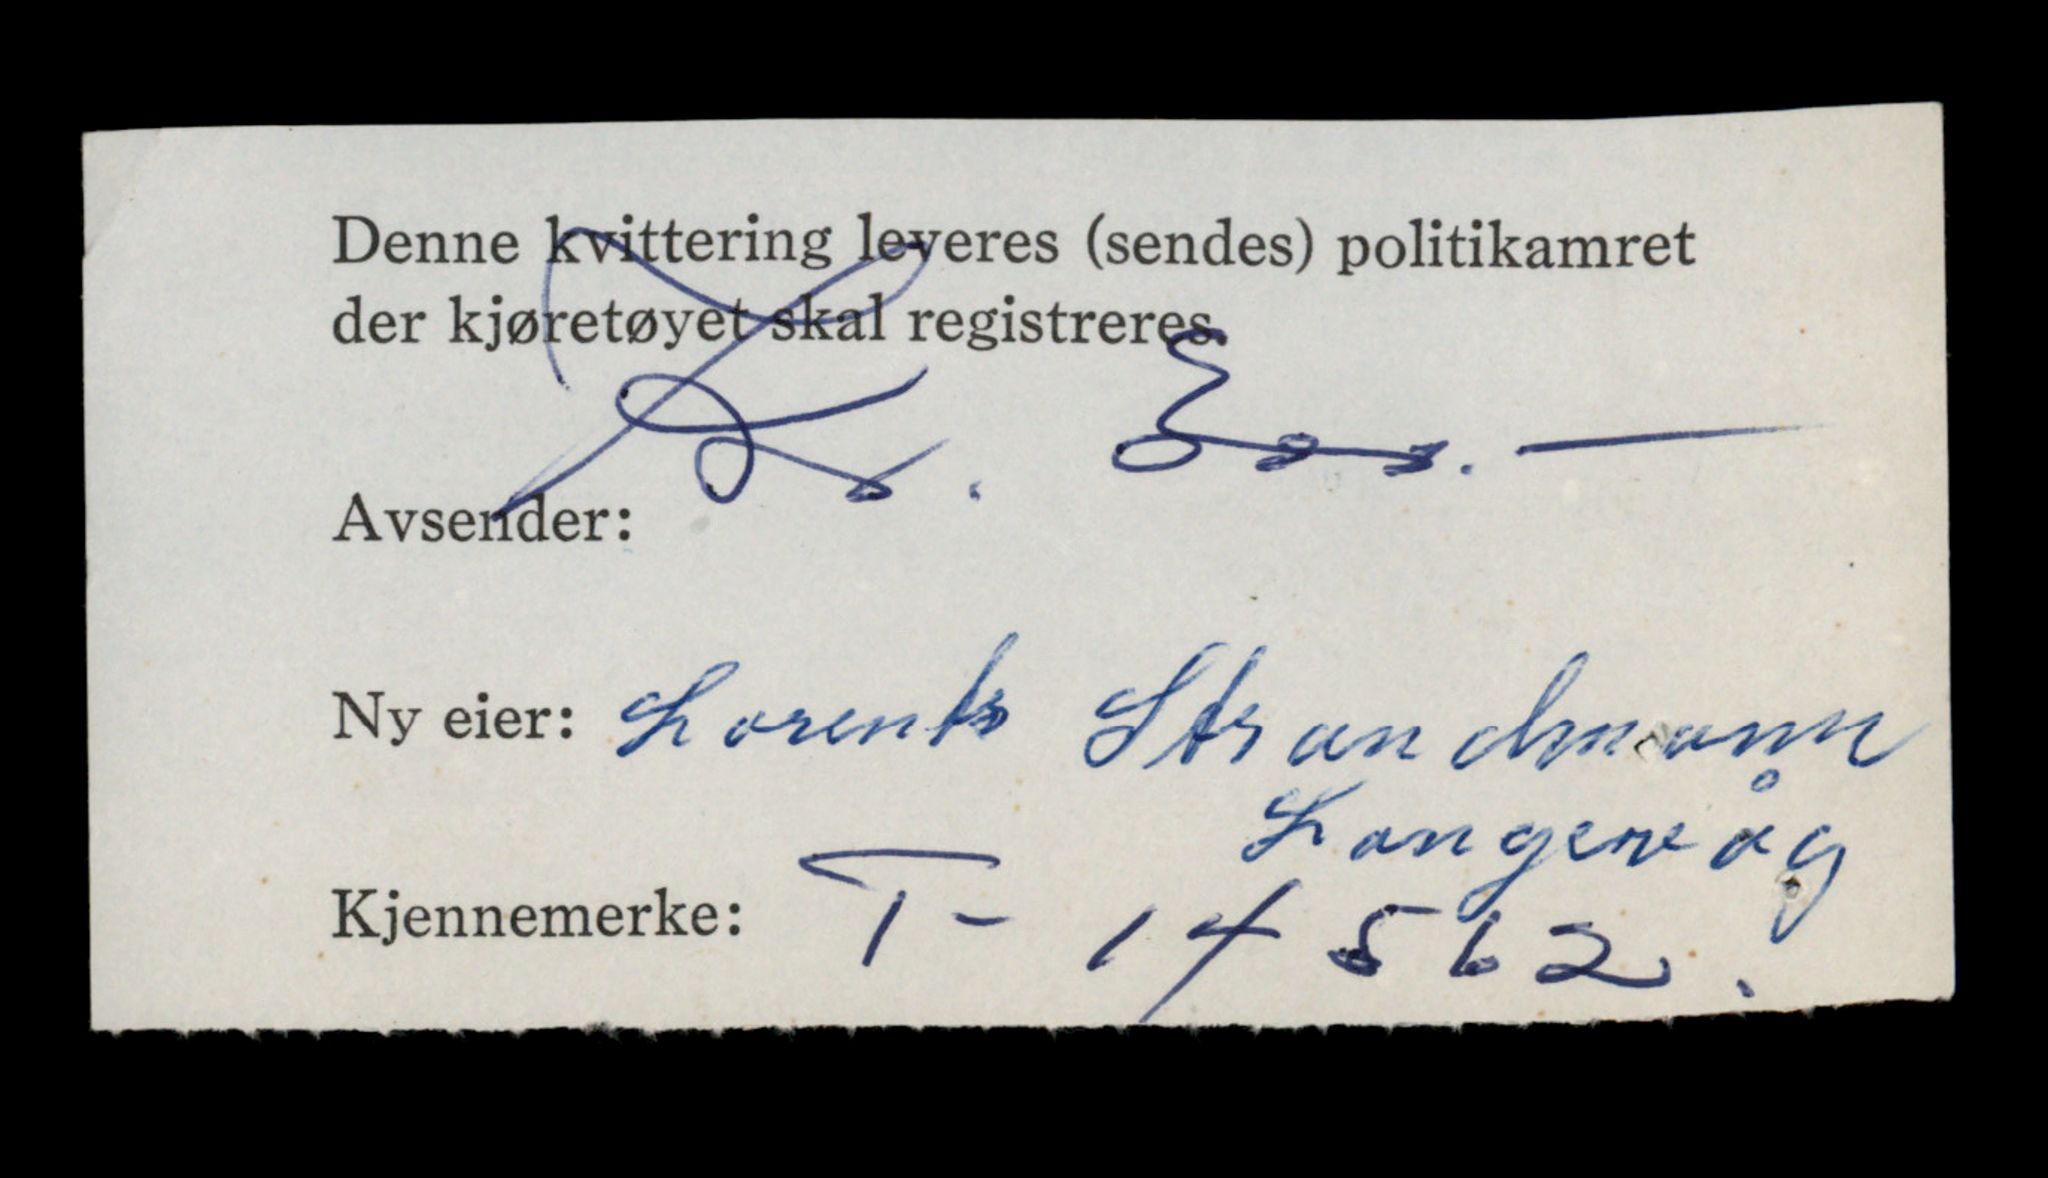 Denne kvittering leveres (sendes) politikamret
der kjøretøyet skal registreres.
Avsender:
Ny eier: Lorents Strandmann
Langevåg
Kjennemerke: T- 14562.